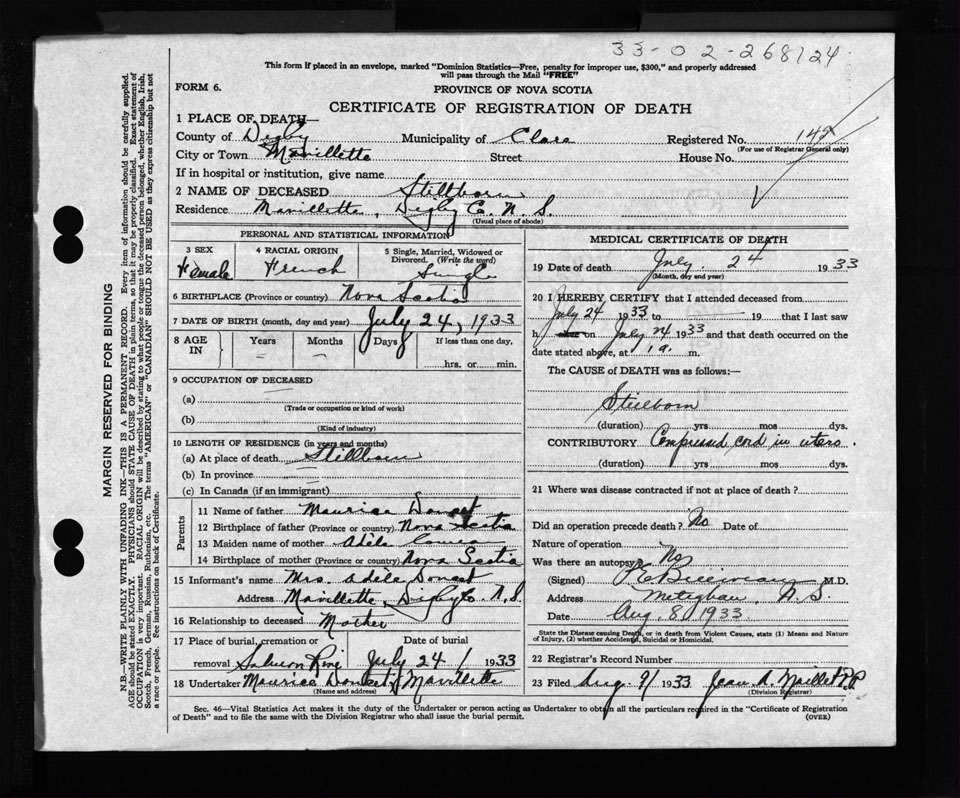 33-02-268124
This form if placed in an envelope, marked "Dominion Statistics—Free, penalty for improper use, $300," and properly addressed
will pass through the Mail "FREE"
FORM 6.
PROVINCE OF NOVA SCOTIA
CERTIFICATE OF REGISTRATION OF DEATH
1 PLACE OF DEATH—
County of Digby Municipality of Clare Registered No. 142
(For use of Registrar General only)
City or Town Mavillette Street House No.
If in hospital or institution, give name
2 NAME OF DECEASED Stillborn
Residence Mavillette, Digby Co. N. S.
(Usual place of abode)
PERSONAL AND STATISTICAL INFORMATION
3 SEX Female
4 RACIAL ORIGIN French
5 Single, Married, Widowed or Divorced. (Write the word) Single
6 BIRTHPLACE (Province or country) Nova Scotia
7 DATE OF BIRTH (month, day and year) July 24, 1933
8 AGE IN Years Months Days If less than one day,
— —
hrs. or min.
9 OCCUPATION OF DECEASED
(a)
(Trade or occupation or kind of work)
(b)
(Kind of industry)
10 LENGTH OF RESIDENCE (in years and months)
(a) At place of death Stillborn
(b) In province
(c) In Canada (if an immigrant)
Parents
11 Name of father Maurice Doucet
12 Birthplace of father (Province or country) Nova Scotia
13 Maiden name of mother Adèle
14 Birthplace of mother (Province or country) Nova Scotia
15 Informant's name Mrs. Adèle Doucet
Address Mavillette, Digby Co. N.S.
16 Relationship to deceased Mother
17 Place of burial, cremation or removal Salmon River
Date of burial July 24 1933
18 Undertaker Maurice Doucet, Mavillette
(Name and address)
MEDICAL CERTIFICATE OF DEATH
19 Date of death July 24 1933
(Month, day and year)
20 I HEREBY CERTIFY that I attended deceased from
July 24 1933 to 19 that I last saw
h on July 24 1933 and that death occurred on
date stated above, at 1 a. m.
The CAUSE of DEATH was as follows:—
Stillborn
(duration) yrs mos dys.
CONTRIBUTORY Compressed cord in utero.
(duration) yrs mos dys.
21 Where was disease contracted if not at place of death?
Did an operation precede death? No Date of
Nature of operation
Was there an autopsy? No
(Signed) M.D.
Address Meteghan, N.S.
Date Aug. 8, 1933
State the Disease causing Death, or in death from Violent Causes, state (1) Means and Nature
of Injury, (2) whether Accidental, Suicidal or Homicidal.
22 Registrar's Record Number
23 Filed Aug. 9/ 1933 Jean A. Maillet
(Division Registrar)
Sec. 46—Vital Statistics Act makes it the duty of the Undertaker or person acting as Undertaker to obtain all the particulars required in the "Certificate of Registration
of Death" and to file the same with the Division Registrar who shall issue the burial permit.
(OVER)
MARGIN RESERVED FOR BINDING
N.B.—WRITE PLAINLY WITH UNFADING INK—THIS IS A PERMANENT RECORD. Every item of information should be carefully supplied.
AGE should be stated EXACTLY. PHYSICIANS should STATE CAUSE OF DEATH in plain terms, so that it may be properly classified. Exact statement of
OCCUPATION is very important. RACIAL ORIGIN will be described by stating to what people or tongue the deceased person belonged, whether English, Irish,
Scotch, French, German, Russian, Ruthenian, etc. The terms "AMERICAN" or "CANADIAN" SHOULD NOT BE USED as they express citizenship but not
a race or people. See instructions on back of Certificate.